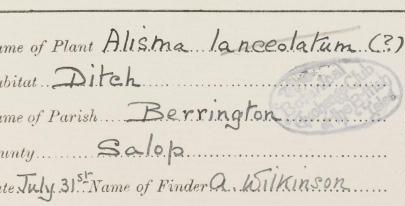 ame of Plant Alisma lanceolatum (?)
abitat Ditch
ame of Parish Berrington
unty Salop
ate July 31st Name of Finder A. Wilkinson